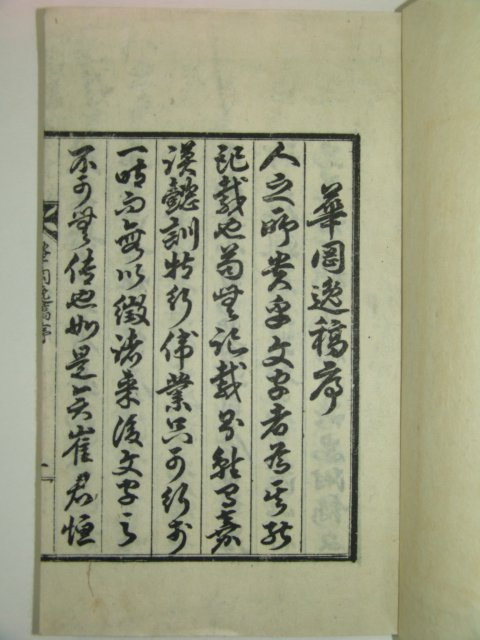 華岡逸稿序
人之所貴乎文字者爲其能
記載也苟無記載則雖有嘉
謨懿訓特行偉業只可行於
一時而無以徵諸來後文字之
不可無傳也如是矣崔君恒
華岡逸稿序
一